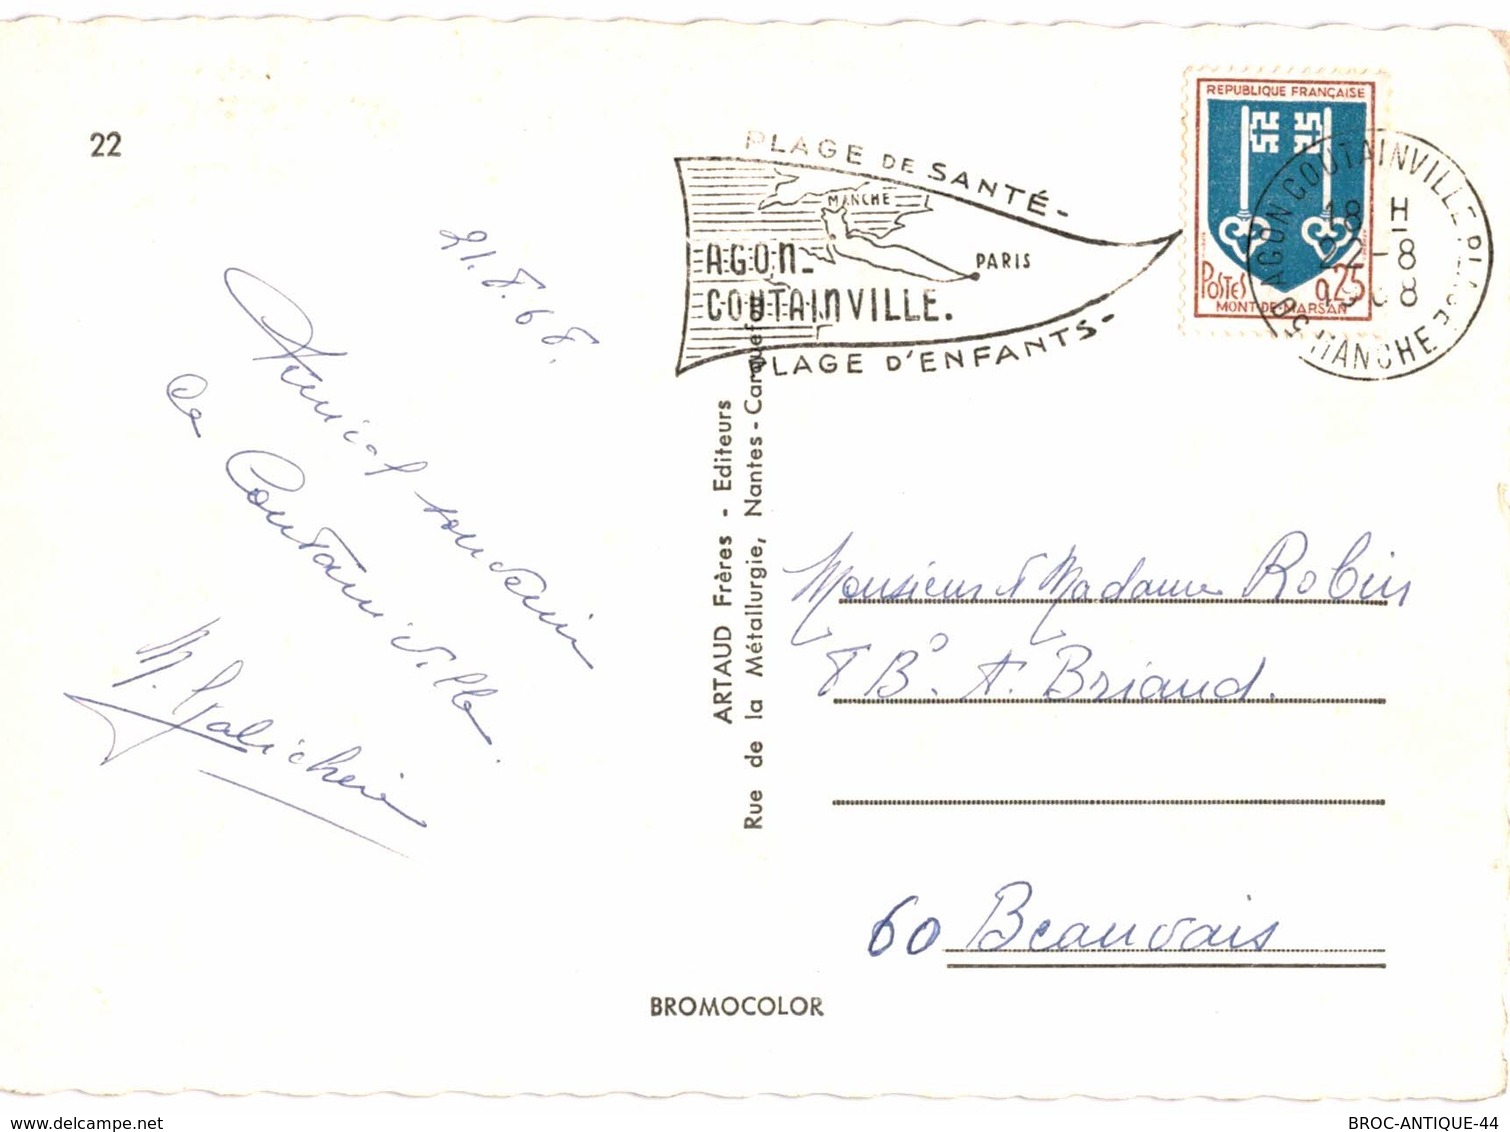 22
21.8.68.
Amical souvenir
de Coutainville.
PLAGE DE SANTÉ -
MANCHE
AGON-
COUTAINVILLE.
PARIS
PLAGE D'ENFANTS -
REPUBLIQUE FRANÇAISE
POSTES 0,25
MONT-DE-MARSAN
AGON COUTAINVILLE PLAGE
18 H
22-8
1968
50 MANCHE
ARTAUD Frères - Editeurs
Rue de la Métallurgie, Nantes-Carquefou
Monsieur & Madame Robin
8 Bd. A. Briand.
60 Beauvais
BROMOCOLOR
www.delcampe.net
BROC-ANTIQUE-44